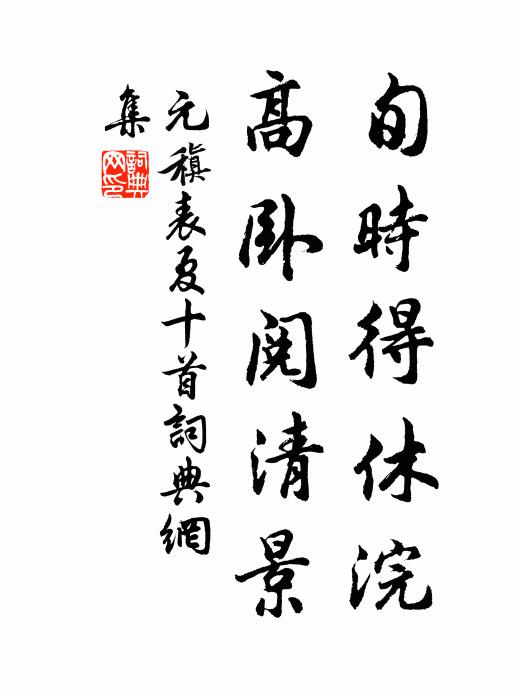 旬時得休浣
高臥閱清景
元稹表夏十首詞典網
集
詞典網印